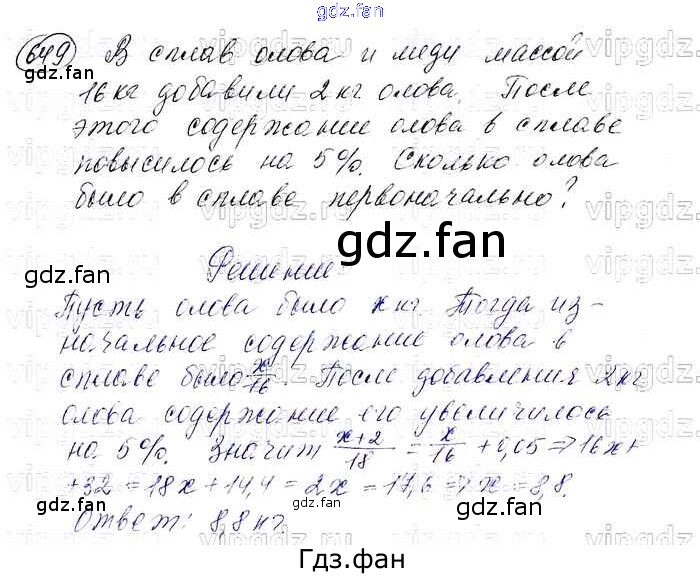 gdz.fan
649 В сплав олова и меди массой
gdz.fan
16 кг добавили 2 кг олова. После
этого содержание олова в сплаве
повысилось на 5%. Сколько олова
было в сплаве первоначально?
gdz.fan
gdz.fan
Решение
gdz.fan
Пусть олова было x кг. Тогда из-
начальное содержание олова в
сплаве было x/16. После добавления 2 кг
олова содержание его увеличилось
на 5%. Значит (x+2)/18 = x/16 + 0,05 => 16x+
+32 = 18x + 14,4 = 2x = 17,6 => x = 8,8.
gdz.fan
gdz.fan
Ответ: 8,8 кг.
Гдз.фан